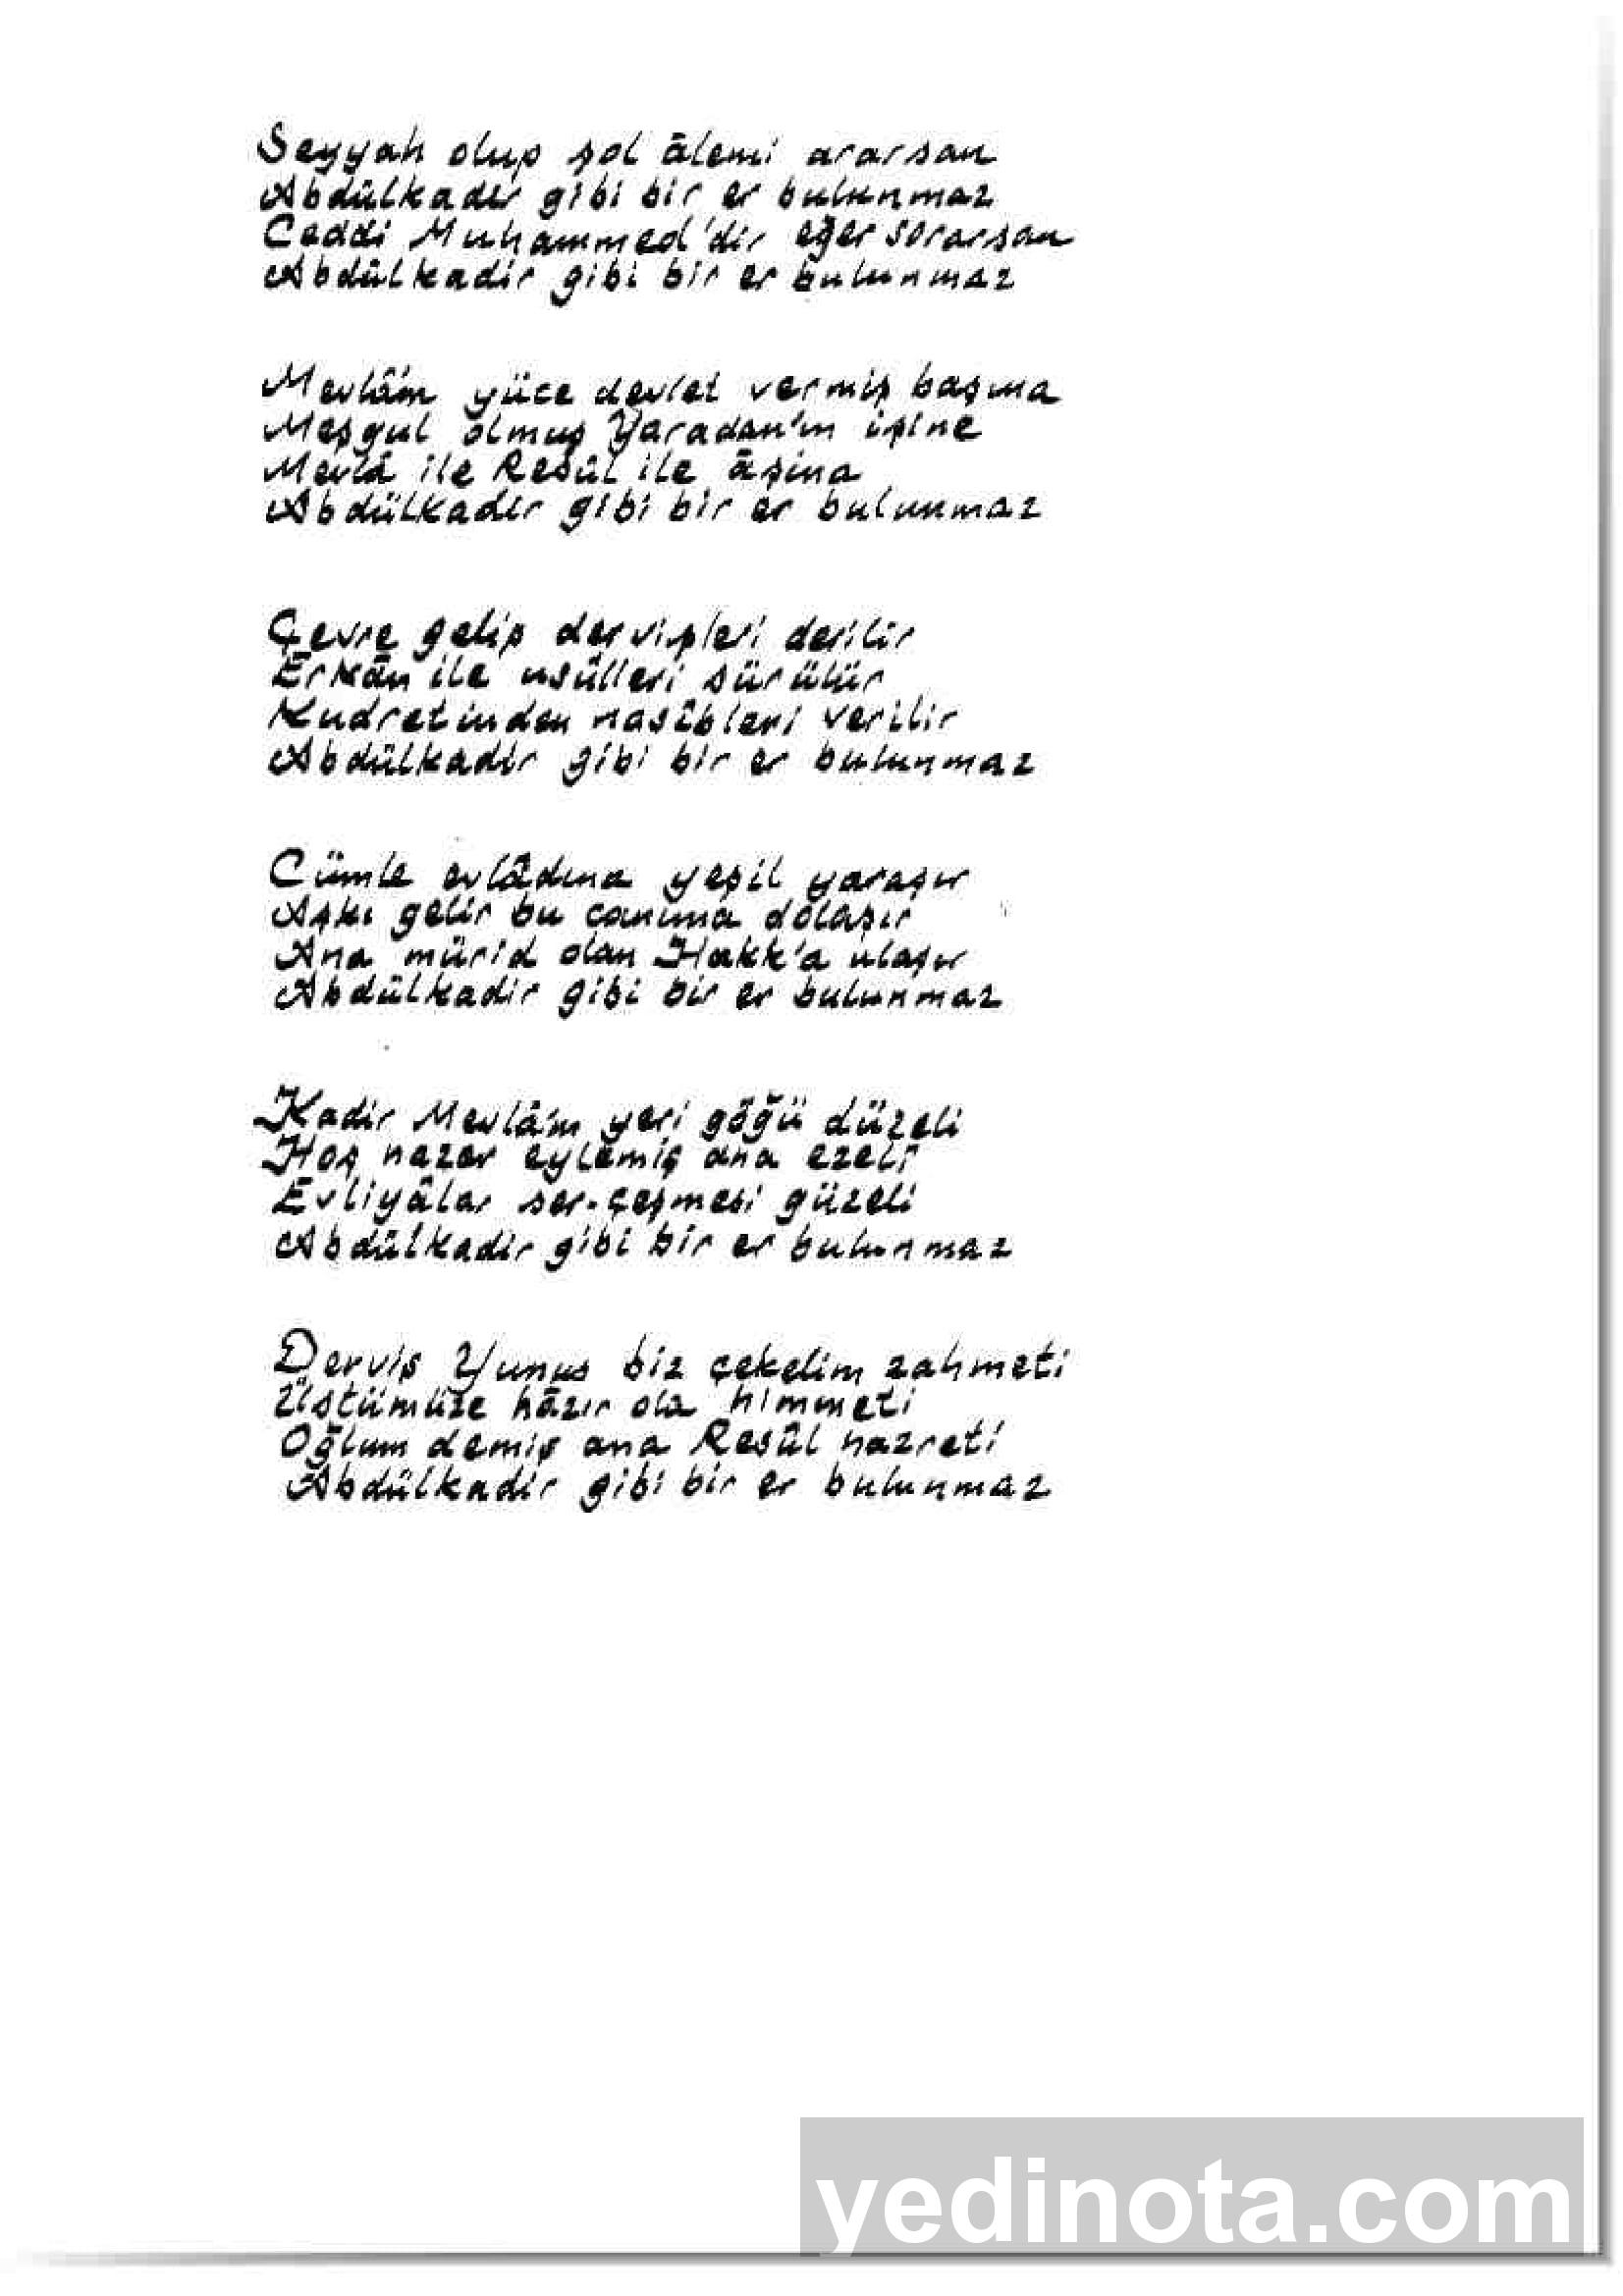 Seyyah olup şol âlemi ararsan
Abdülkadir gibi bir er bulunmaz
Ceddi Muhammed'dir eğer sorarsan
Abdülkadir gibi bir er bulunmaz
Mevlâ'm yüce devlet vermiş başına
Meşgul olmuş Yaradan'ın işine
Mevlâ ile Resûl ile âşina
Abdülkadir gibi bir er bulunmaz
Çevre gelip dervişleri derilir
Erkân ile usûlleri sürülür
Kudretinden nasîbleri verilir
Abdülkadir gibi bir er bulunmaz
Cümle evlâdına yeşil yaraşır
Aşkı gelir bu canıma dolaşır
Ana mürid olan Hakk'a ulaşır
Abdülkadir gibi bir er bulunmaz
Kadir Mevlâ'm yeri göğü düzeli
Hoş nazar eylemiş ana ezelî
Evliyâlar ser-çeşmesi güzeli
Abdülkadir gibi bir er bulunmaz
Derviş Yunus biz çekelim zahmeti
Üstümüze hâzır ola himmeti
Oğlum demiş ana Resûl hazreti
Abdülkadir gibi bir er bulunmaz
yedinota.com